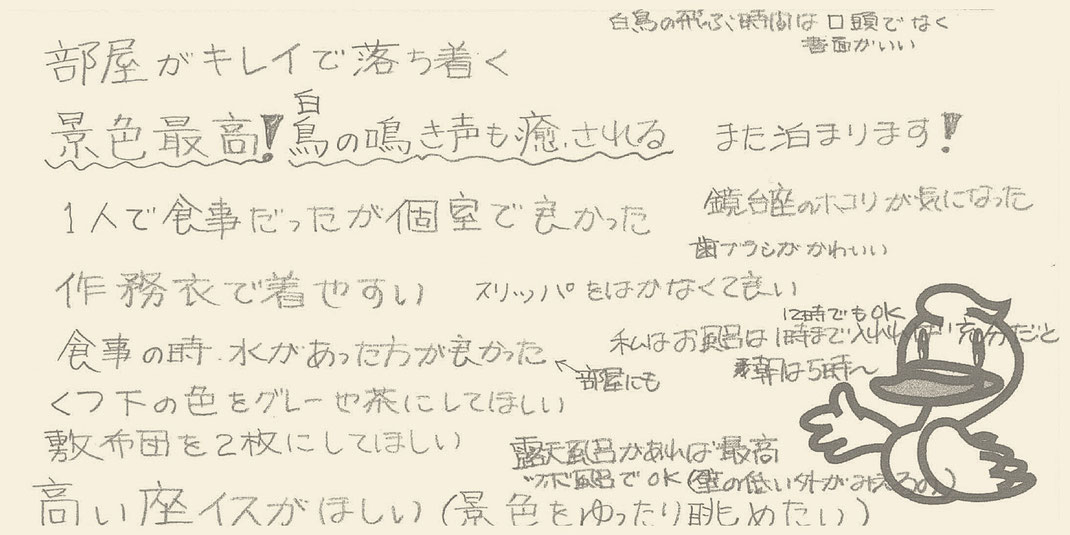 白鳥の飛ぶ時間は口頭でなく
書面がいい
部屋がキレイで落ち着く
景色最高!白鳥の鳴き声も癒される
また泊まります!
1人で食事だったが個室で良かった
鏡台座のホコリが気になった
歯ブラシがかわいい
作務衣で着やすい
スリッパをはかなくて良い
12時でもOK
私はお風呂は1時まで入れれば充分だと
朝は5時〜
食事の時、水があった方が良かった
←部屋にも
くつ下の色をグレーや茶にしてほしい
敷布団を2枚にしてほしい
露天風呂があれば最高
ツボ風呂でOK(壁の低い外がみえるの)
高い座イスがほしい(景色をゆったり眺めたい)